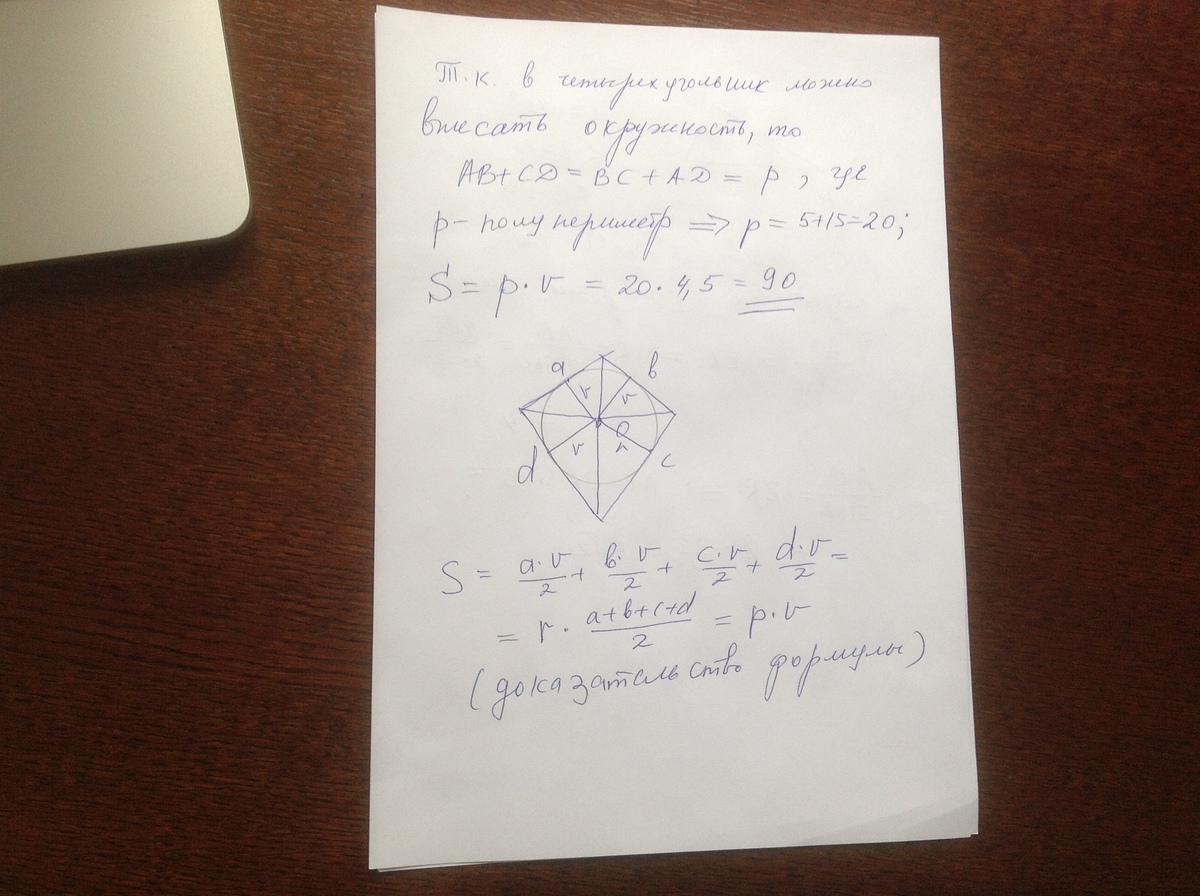 Т.к. в четырехугольник можно
вписать окружность, то
AB+CD=BC+AD = p, где
p- полупериметр => p = 5+15=20;
S = p·r = 20·4,5 = 90
a b
r r
O
r r
d c
S = a·r/2 + b·r/2 + c·r/2 + d·r/2 =
= r · a+b+c+d/2 = p·r
(доказательство формулы)